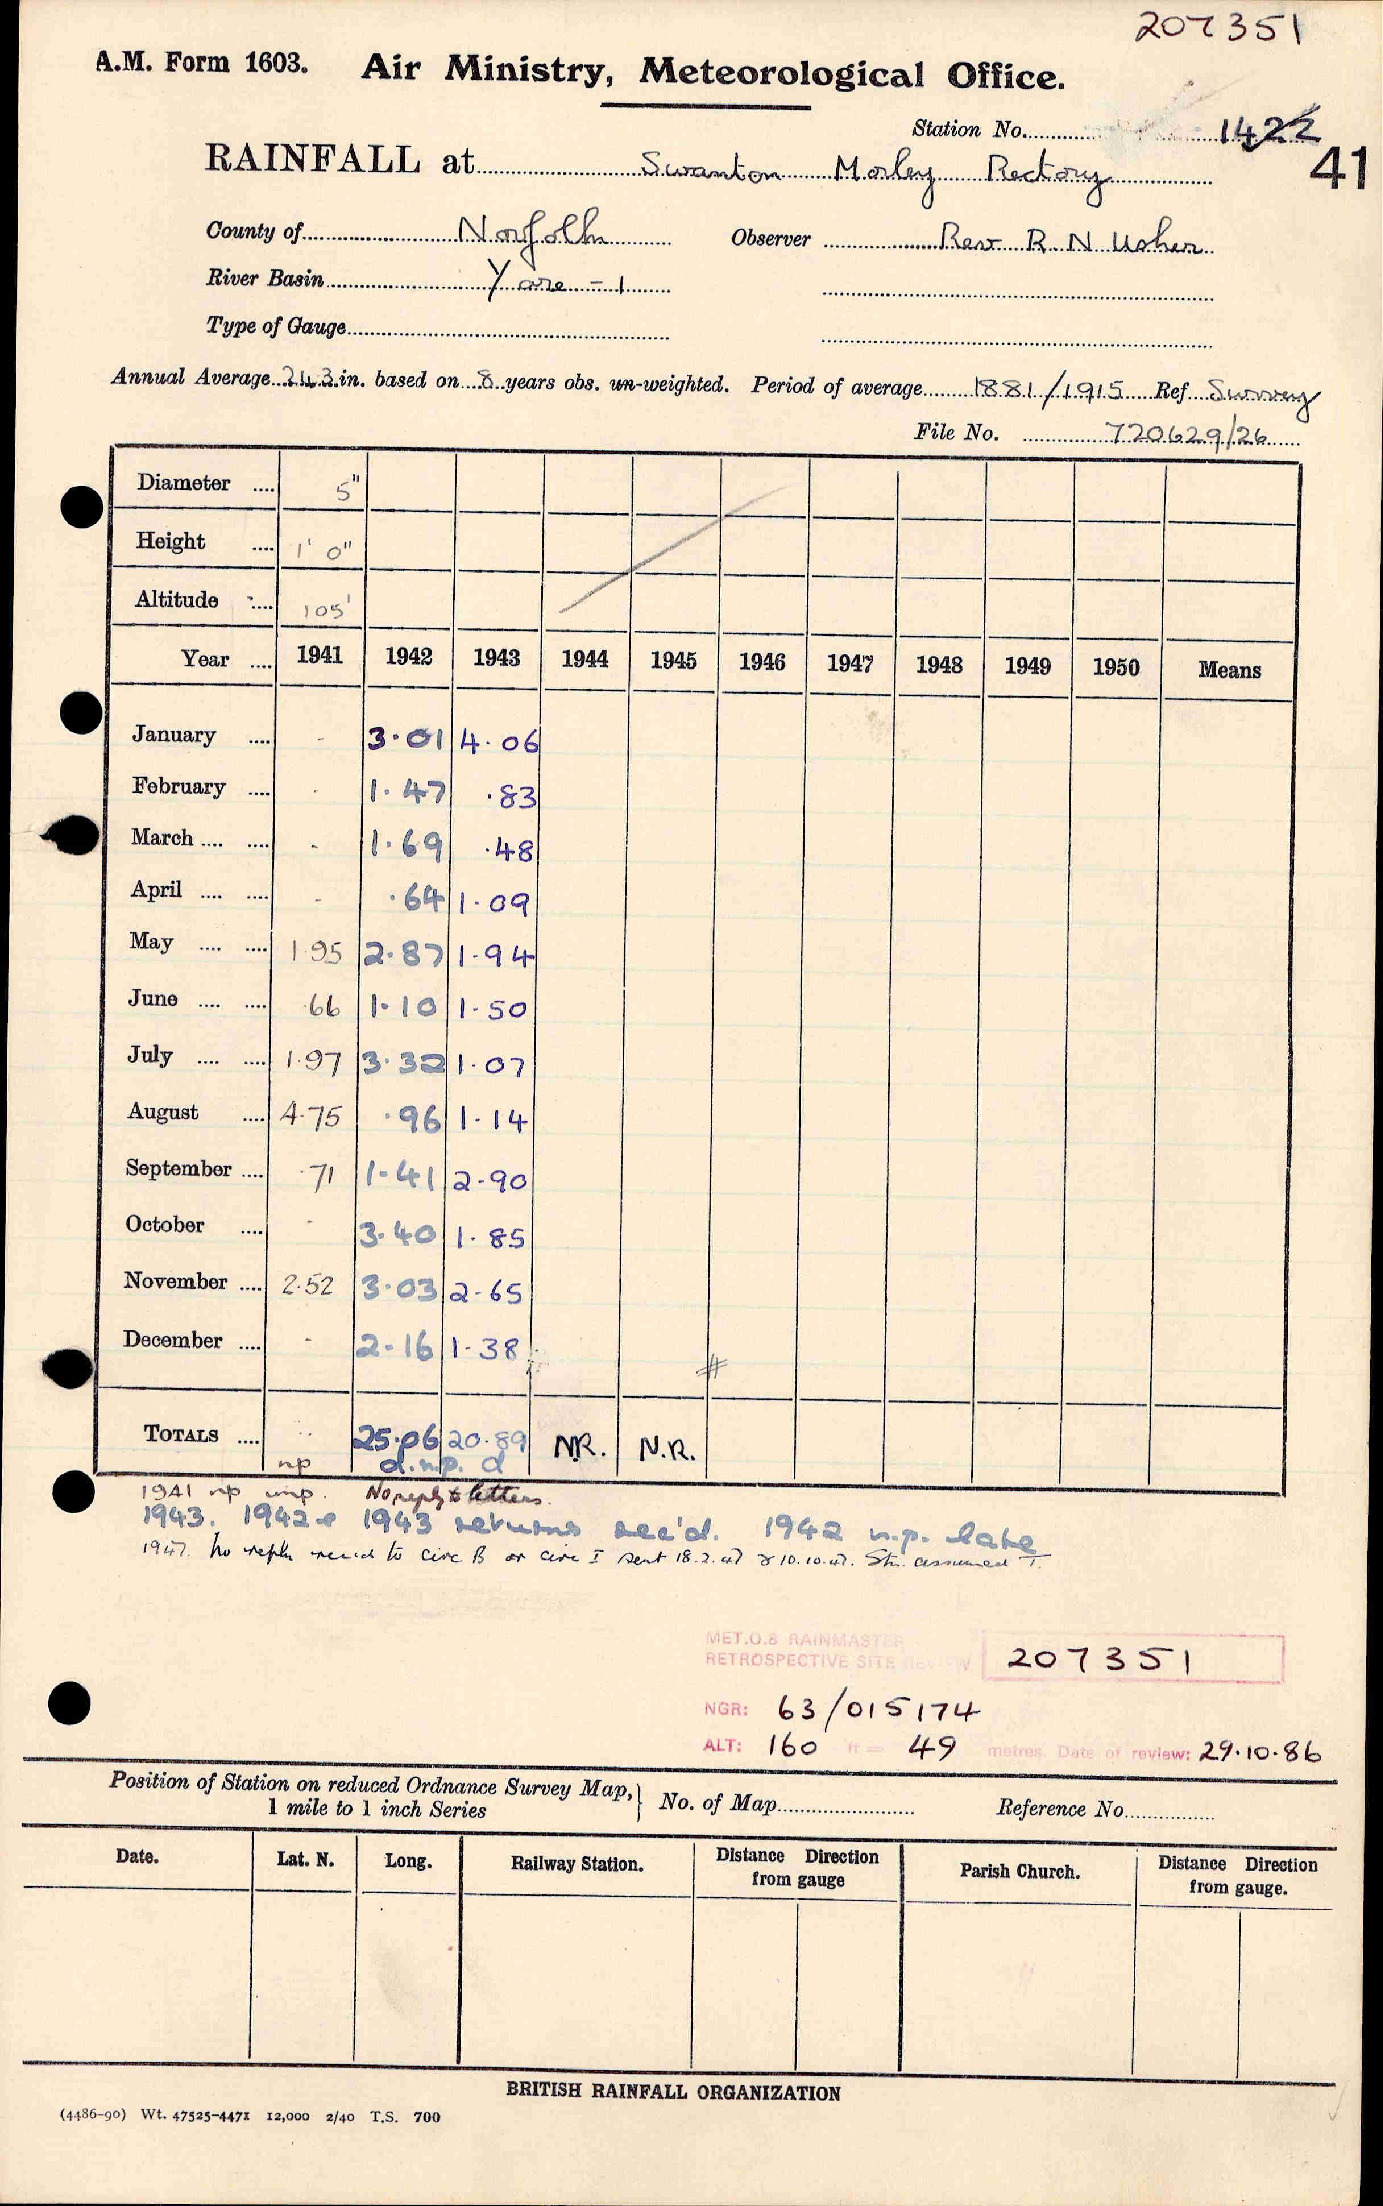 207351
A.M. Form 1603. Air Ministry, Meteorological Office.
Station No. 1422
41
RAINFALL at Swanton Morley Rectory
County of Norfolk Observer Rev R N Usher
River Basin Yare - 1
Type of Gauge
Annual Average 24.3 in. based on 8 years obs. un-weighted. Period of average 1881/1915 Ref. Survey
File No. 720629/26
Diameter .... 5"
Height .... 1' 0"
Altitude .... 105'
Year .... 1941 1942 1943 1944 1945 1946 1947 1948 1949 1950 Means
January .... - 3.01 4.06
February .... - 1.47 .83
March .... .... - 1.69 .48
April .... .... - .64 1.09
May .... .... 1.95 2.87 1.94
June .... .... .66 1.10 1.50
July .... .... 1.97 3.32 1.07
August .... 4.75 .96 1.14
September .... .71 1.41 2.90
October .... - 3.40 1.85
November .... 2.52 3.03 2.65
December .... - 2.16 1.38
# #
TOTALS .... 25.06 20.89 N.R. N.R.
np d.n.p. d
1941 np imp. No reply to letters.
1943. 1942 & 1943 returns rec'd. 1942 n.p. late
1947. No reply rec'd to circ B or circ I sent 18.2.47 & 10.10.47. Stn. assumed T.
MET.O.8 RAINMASTER
RETROSPECTIVE SITE REVIEW 207351
NGR: 63/015174
ALT: 160 ft = 49 metres. Date of review: 29.10.86
Position of Station on reduced Ordnance Survey Map, 1 mile to 1 inch Series } No. of Map Reference No.
Date. Lat. N. Long. Railway Station. Distance from gauge Direction Parish Church. Distance Direction from gauge.
BRITISH RAINFALL ORGANIZATION
(4486-90) Wt. 47525-4471 12,000 2/40 T.S. 700